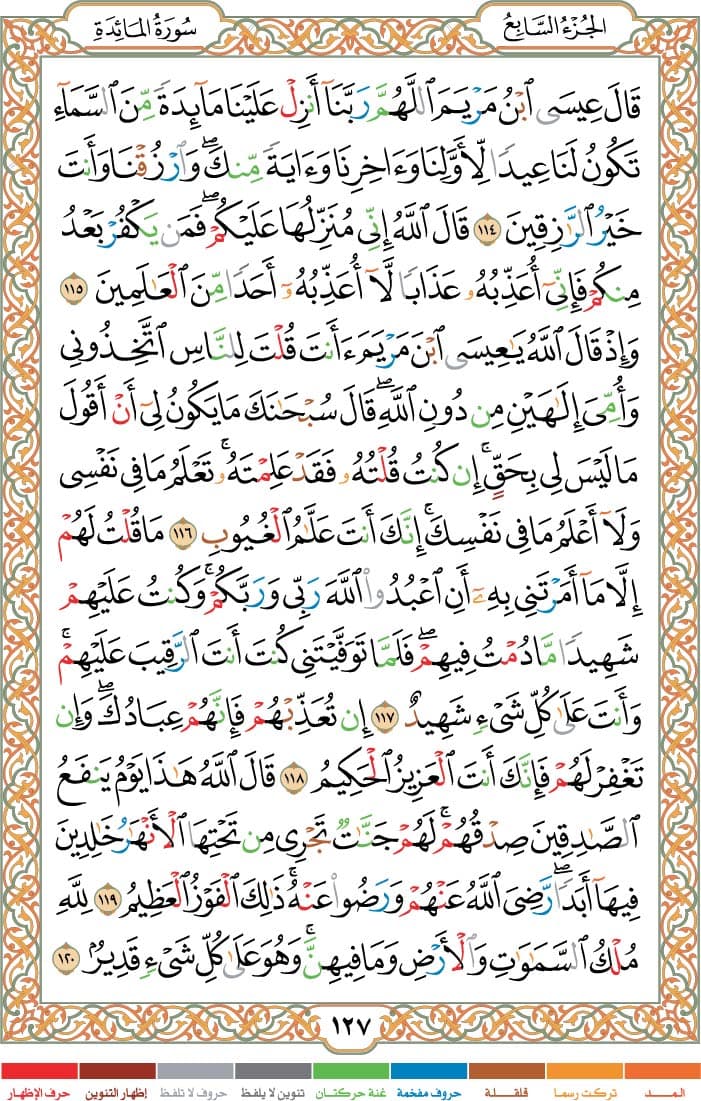 الجُزْءُ السَّابِعُ
سُورَةُ المَائِدَةِ
قَالَ عِيسَى ٱبْنُ مَرْيَمَ ٱللَّهُمَّ رَبَّنَآ أَنزِلْ عَلَيْنَا مَآئِدَةً مِّنَ ٱلسَّمَآءِ
تَكُونُ لَنَا عِيدًا لِّأَوَّلِنَا وَءَاخِرِنَا وَءَايَةً مِّنكَ ۖ وَٱرْزُقْنَا وَأَنتَ
خَيْرُ ٱلرَّٰزِقِينَ ١١٤ قَالَ ٱللَّهُ إِنِّى مُنَزِّلُهَا عَلَيْكُمْ ۖ فَمَن يَكْفُرْ بَعْدُ
مِنكُمْ فَإِنِّىٓ أُعَذِّبُهُۥ عَذَابًا لَّآ أُعَذِّبُهُۥٓ أَحَدًا مِّنَ ٱلْعَٰلَمِينَ ١١٥
وَإِذْ قَالَ ٱللَّهُ يَٰعِيسَى ٱبْنَ مَرْيَمَ ءَأَنتَ قُلْتَ لِلنَّاسِ ٱتَّخِذُونِى
وَأُمِّىَ إِلَٰهَيْنِ مِن دُونِ ٱللَّهِ ۖ قَالَ سُبْحَٰنَكَ مَا يَكُونُ لِىٓ أَنْ أَقُولَ
مَا لَيْسَ لِى بِحَقٍّ ۚ إِن كُنتُ قُلْتُهُۥ فَقَدْ عَلِمْتَهُۥ ۚ تَعْلَمُ مَا فِى نَفْسِى
وَلَآ أَعْلَمُ مَا فِى نَفْسِكَ ۚ إِنَّكَ أَنتَ عَلَّٰمُ ٱلْغُيُوبِ ١١٦ مَا قُلْتُ لَهُمْ
إِلَّا مَآ أَمَرْتَنِى بِهِۦٓ أَنِ ٱعْبُدُوا۟ ٱللَّهَ رَبِّى وَرَبَّكُمْ ۚ وَكُنتُ عَلَيْهِمْ
شَهِيدًا مَّا دُمْتُ فِيهِمْ ۖ فَلَمَّا تَوَفَّيْتَنِى كُنتَ أَنتَ ٱلرَّقِيبَ عَلَيْهِمْ ۚ
وَأَنتَ عَلَىٰ كُلِّ شَىْءٍ شَهِيدٌ ١١٧ إِن تُعَذِّبْهُمْ فَإِنَّهُمْ عِبَادُكَ ۖ وَإِن
تَغْفِرْ لَهُمْ فَإِنَّكَ أَنتَ ٱلْعَزِيزُ ٱلْحَكِيمُ ١١٨ قَالَ ٱللَّهُ هَٰذَا يَوْمُ يَنفَعُ
ٱلصَّٰدِقِينَ صِدْقُهُمْ ۚ لَهُمْ جَنَّٰتٌ تَجْرِى مِن تَحْتِهَا ٱلْأَنْهَٰرُ خَٰلِدِينَ
فِيهَآ أَبَدًا ۚ رَّضِىَ ٱللَّهُ عَنْهُمْ وَرَضُوا۟ عَنْهُ ۚ ذَٰلِكَ ٱلْفَوْزُ ٱلْعَظِيمُ ١١٩ لِلَّهِ
مُلْكُ ٱلسَّمَٰوَٰتِ وَٱلْأَرْضِ وَمَا فِيهِنَّ ۚ وَهُوَ عَلَىٰ كُلِّ شَىْءٍ قَدِيرٌۢ ١٢٠
١٢٧
المـــد تركت رسما قلقـلـة حروف مفخمة غنة حركتـان تنوين لا يلفظ حروف لا تلفظ إظهار التنوين حرف الإظهار